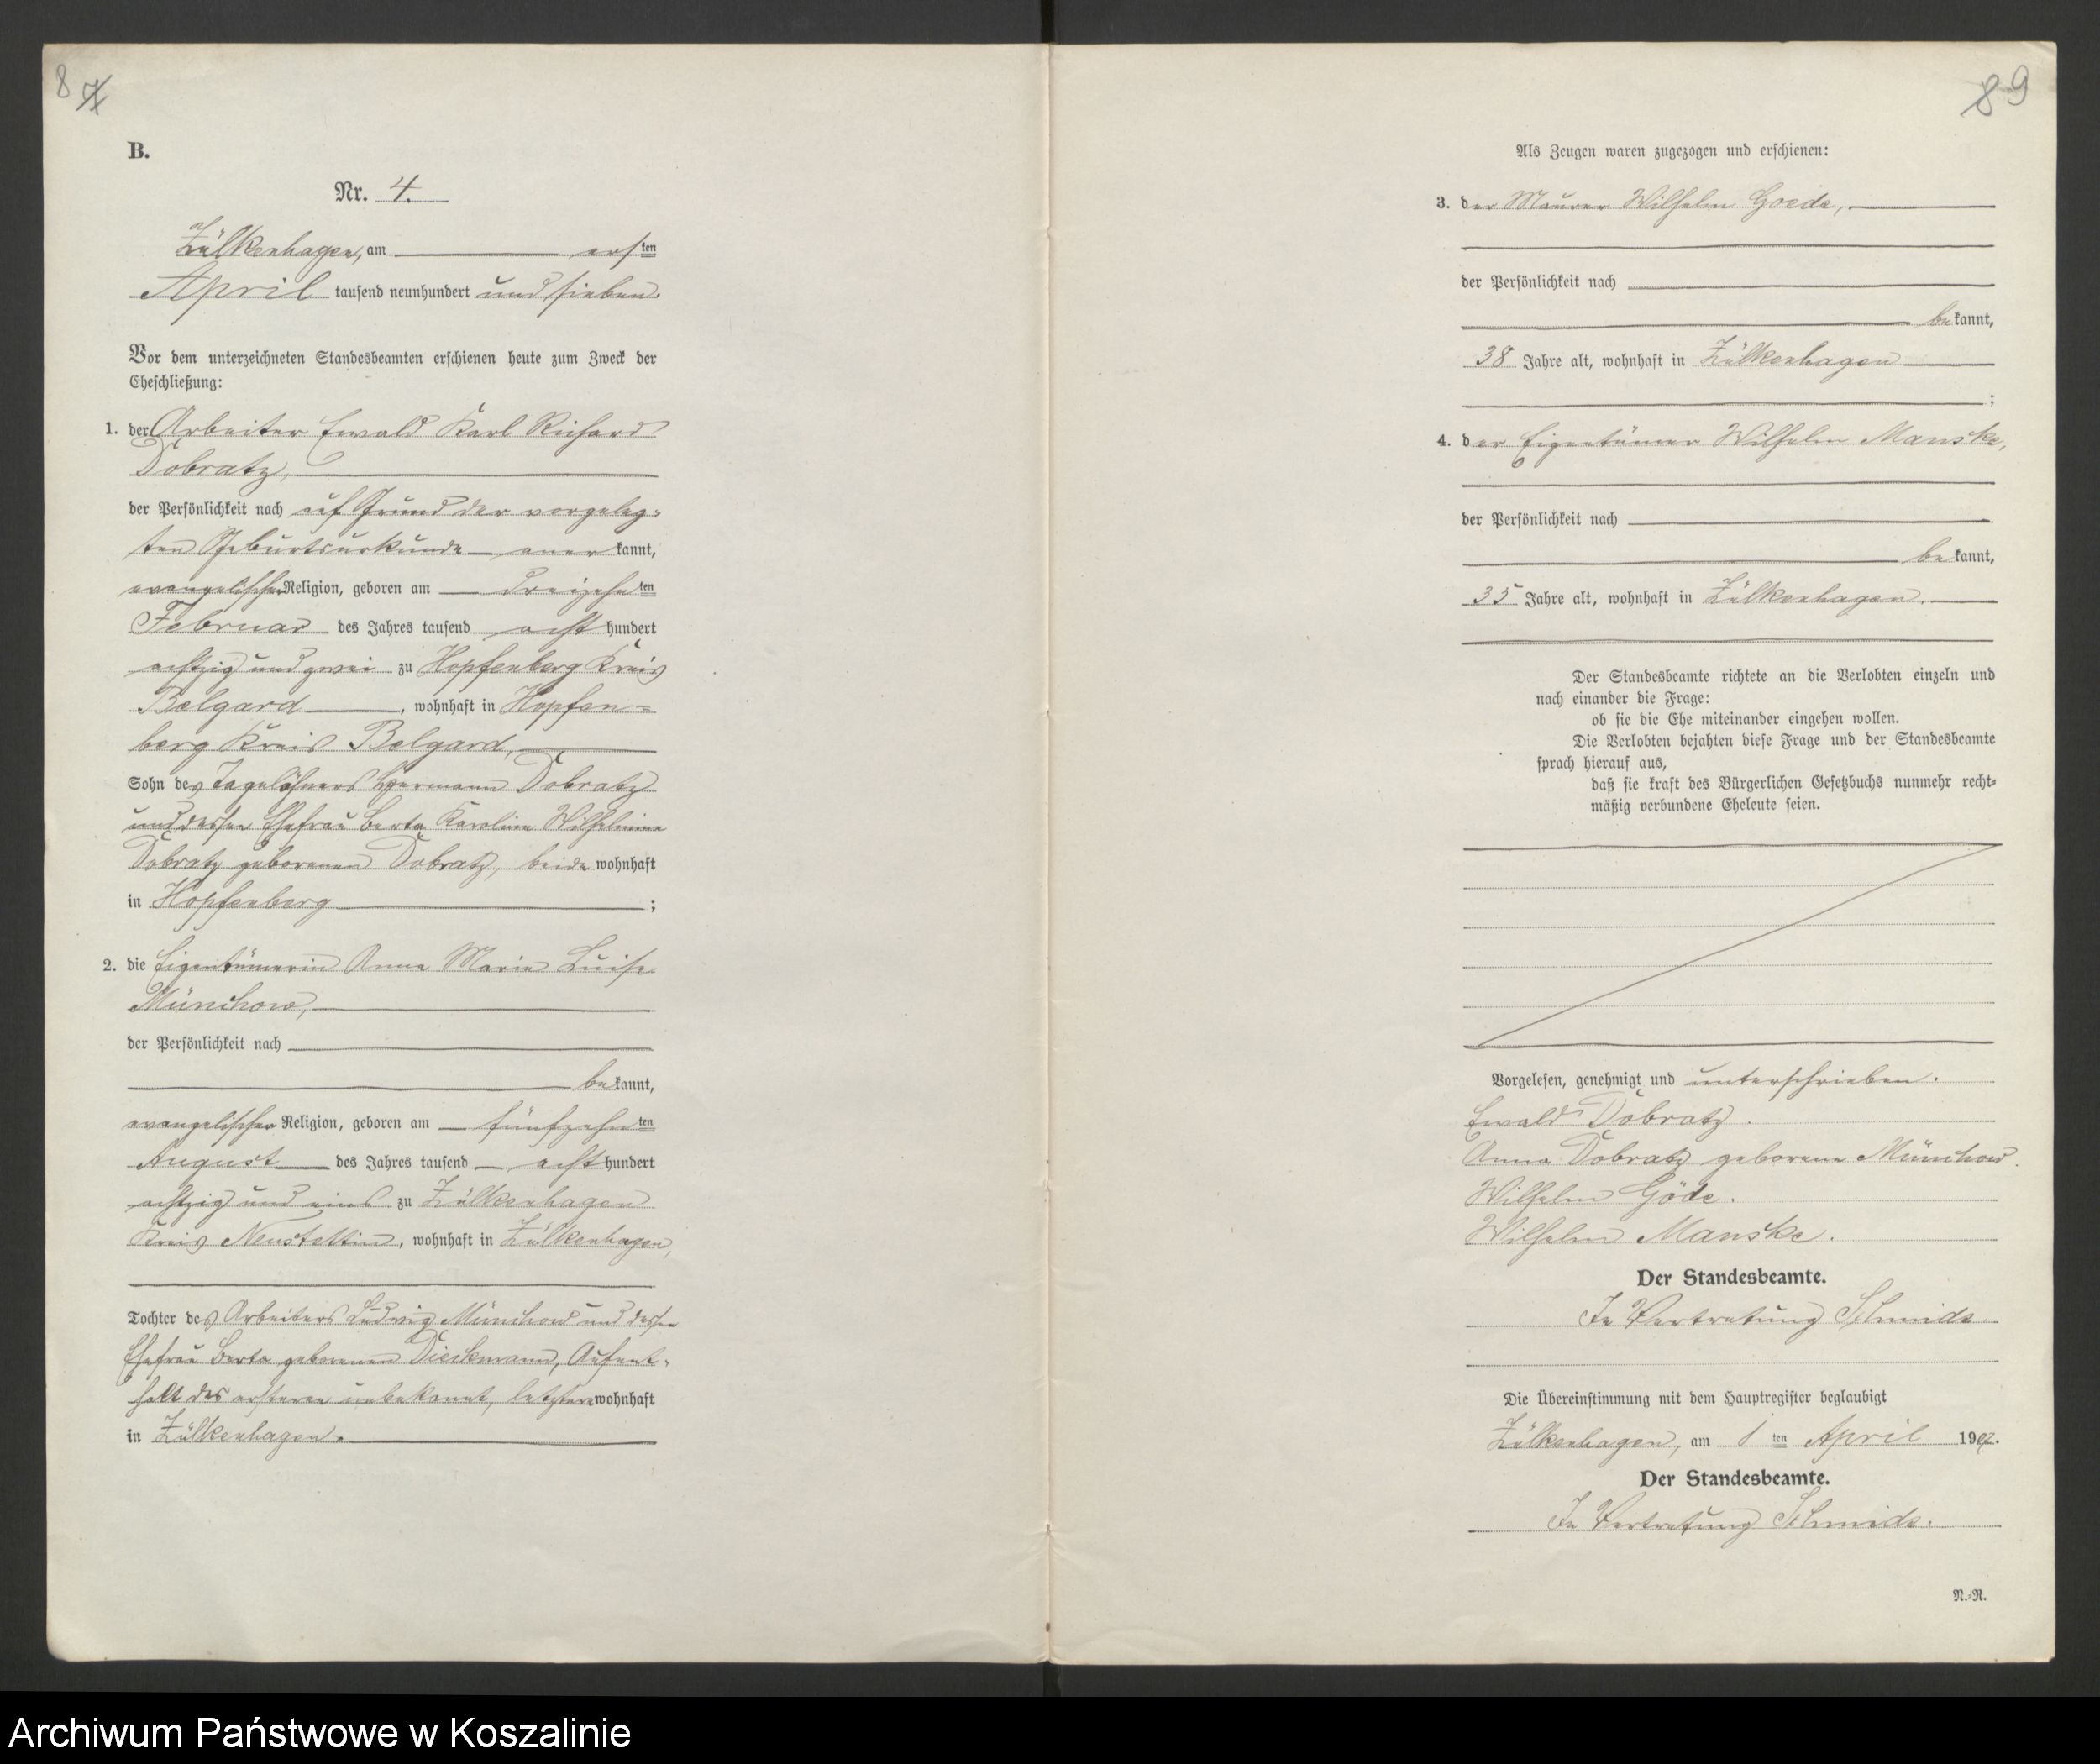 8 7
B.
Nr. 4.
Zülkenhagen, am ersten
April tausend neunhundert und sieben.
Vor dem unterzeichneten Standesbeamten erschienen heute zum Zweck der
Eheschließung:
1. der Arbeiter Ewald Karl Richard
Dobratz,
der Persönlichkeit nach auf Grund der vorgeleg-
ten Geburtsurkunde anerkannt,
evangelischer Religion, geboren am dreizehnten
Februar des Jahres tausend achthundert
achtzig und zwei zu Hopfenberg Kreis
Belgard, wohnhaft in Hopfen=
berg Kreis Belgard,
Sohn des Tagelöhners Hermann Dobratz
und dessen Ehefrau Berta Karoline Wilhelmine
Dobratz geborenen Dobratz, beide wohnhaft
in Hopfenberg;
2. die Eigentümerin Anna Marie Luise
Münchow,
der Persönlichkeit nach
bekannt,
evangelischer Religion, geboren am fünfzehnten
August des Jahres tausend achthundert
achtzig und eins zu Zülkenhagen
Kreis Neustettin, wohnhaft in Zülkenhagen,
Tochter des Arbeiters Ludwig Münchow und dessen
Ehefrau Berta geborenen Dieckmann, Aufent-
halt des ersteren unbekannt, letztere wohnhaft
in Zülkenhagen.
8 9
Als Zeugen waren zugezogen und erschienen:
3. der Maurer Wilhelm Goede,
der Persönlichkeit nach
bekannt,
38 Jahre alt, wohnhaft in Zülkenhagen
;
4. der Eigentümer Wilhelm Manske,
der Persönlichkeit nach
bekannt,
35 Jahre alt, wohnhaft in Zülkenhagen.
Der Standesbeamte richtete an die Verlobten einzeln und
nach einander die Frage:
ob sie die Ehe miteinander eingehen wollen.
Die Verlobten bejahten diese Frage und der Standesbeamte
sprach hierauf aus,
daß sie kraft des Bürgerlichen Gesetzbuchs nunmehr recht-
mäßig verbundene Eheleute seien.
Vorgelesen, genehmigt und unterschrieben.
Ewald Dobratz.
Anna Dobratz geborene Münchow.
Wilhelm Göde.
Wilhelm Manske.
Der Standesbeamte.
In Vertretung Schmidt.
Die Übereinstimmung mit dem Hauptregister beglaubigt
Zülkenhagen, am 1ten April 1907.
Der Standesbeamte.
In Vertretung Schmidt.
N.-R.
Archiwum Państwowe w Koszalinie